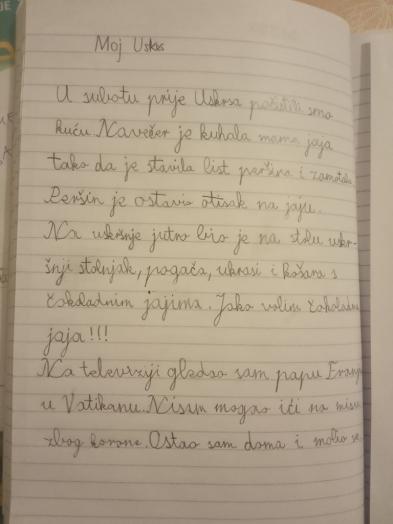 Moj Uskrs
U subotu prije Uskrsa počistili smo
kuću. Navečer je kuhala mama jaja
tako da je stavila list peršina i zamotala
Peršin je ostavio otisak na jaju.
Na uskršnje jutro bio je na stolu uskr-
šnji stolnjak, pogača, ukrasi i košara s
čokoladnim jajima. Jako volim čokoladna
jaja!!!
Na televiziji gledao sam papu Franju
u Vatikanu. Nisam mogao ići na misu
zbog korone. Ostao sam doma i molio se.